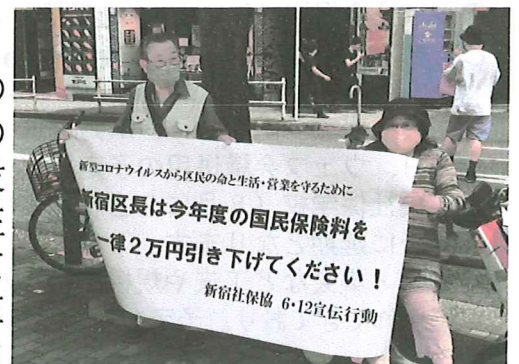 新型コロナウイルスから区民の命と生活・営業を守るために
新宿区長は今年度の国民保険料を
一律2万円引き下げてください!
新宿社保協 6・12宣伝行動
Asahi